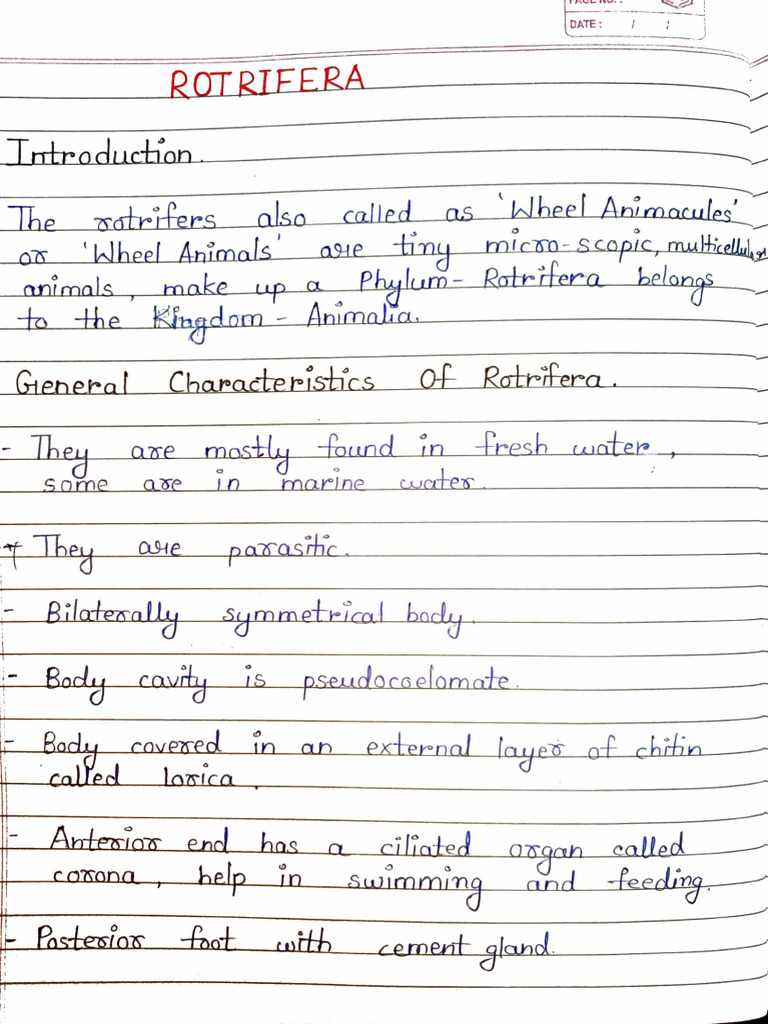 PAGE NO. :
DATE : / /
ROTRIFERA
Introduction.
The rotrifers also called as 'Wheel Animacules'
or 'Wheel Animals' are tiny micro-scopic, multicellular
animals, make up a Phylum- Rotrifera belongs
to the Kingdom - Animalia.
General Characteristics Of Rotrifera.
- They are mostly found in fresh water,
some are in marine water.
* They are parasitic.
- Bilaterally symmetrical body.
- Body cavity is pseudocoelomate.
- Body covered in an external layer of chitin
called lorica.
- Anterior end has a ciliated organ called
corona, help in swimming and feeding.
- Posterior foot with cement gland.